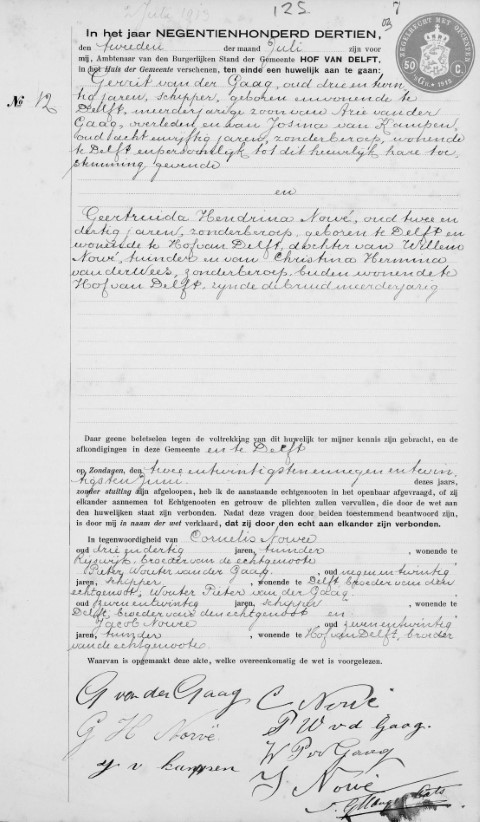 2 Juli 1913
125
7
ZEGELRECHT MET OPCENTEN
50 C.
In het jaar NEGENTIENHONDERD DERTIEN,
den tweeden der maand Juli zijn voor
mij, Ambtenaar van den Burgerlijken Stand der Gemeente HOF VAN DELFT,
in het Huis der Gemeente verschenen, ten einde een huwelijk aan te gaan:
No 12
Gerrit van der Gaag, oud drie en twin
tig jaren, schipper, geboren en wonende te
Delft, meerderjarige zoon van Arie van der
Gaag, overleden en van Josina van Kampen,
oud acht en vyftig jaren, zonder beroep, wonende
te Delft en persoonlijk tot dit huwelijk hare toe-
stemming gevende
en
Geertruida Hendrina Nowé, oud twee en
dertig jaren, zonder beroep, geboren te Delft en
wonende te Hof van Delft, dochter van Willem
Nowé, tuinder en van Christina Hermina
van der Wees, zonder beroep, beiden wonende te
Hof van Delft, zynde de bruid meerderjarig
Daar geene beletselen tegen de voltrekking van dit huwelijk ter mijner kennis zijn gebracht, en de
afkondigingen in deze Gemeente en te Delft
op Zondagen, den twee en twintigsten en negen en twin
tigsten Juni dezes jaars,
zonder stuiting zijn afgeloopen, heb ik de aanstaande echtgenooten in het openbaar afgevraagd, of zij
elkander aannemen tot Echtgenooten en getrouw de plichten zullen vervullen, die door de wet aan
den huwelijken staat zijn verbonden. Nadat deze vragen door beiden toestemmend beantwoord zijn,
is door mij in naam der wet verklaard, dat zij door den echt aan elkander zijn verbonden.
In tegenwoordigheid van Cornelis Nowee
oud drie en dertig jaren, tuinder, wonende te
Ryswyk, broeder van de echtgenoote
Pieter Wouter van der Gaag, oud negen en twintig
jaren, schipper, wonende te Delft, broeder van den
echtgenoot, Wouter Pieter van der Gaag
oud zeven en twintig jaren, schipper
Delft, broeder van den echtgenoot en
Jacob Nowee oud zeven en twintig
jaren, tuinder, wonende te Hof van Delft, broeder
van de echtgenoote
Waarvan is opgemaakt deze akte, welke overeenkomstig de wet is voorgelezen.
G van der Gaag
C Nowé
G H Nowé
P W v d Gaag.
J v kampen
W P v Gaag
J Nowé